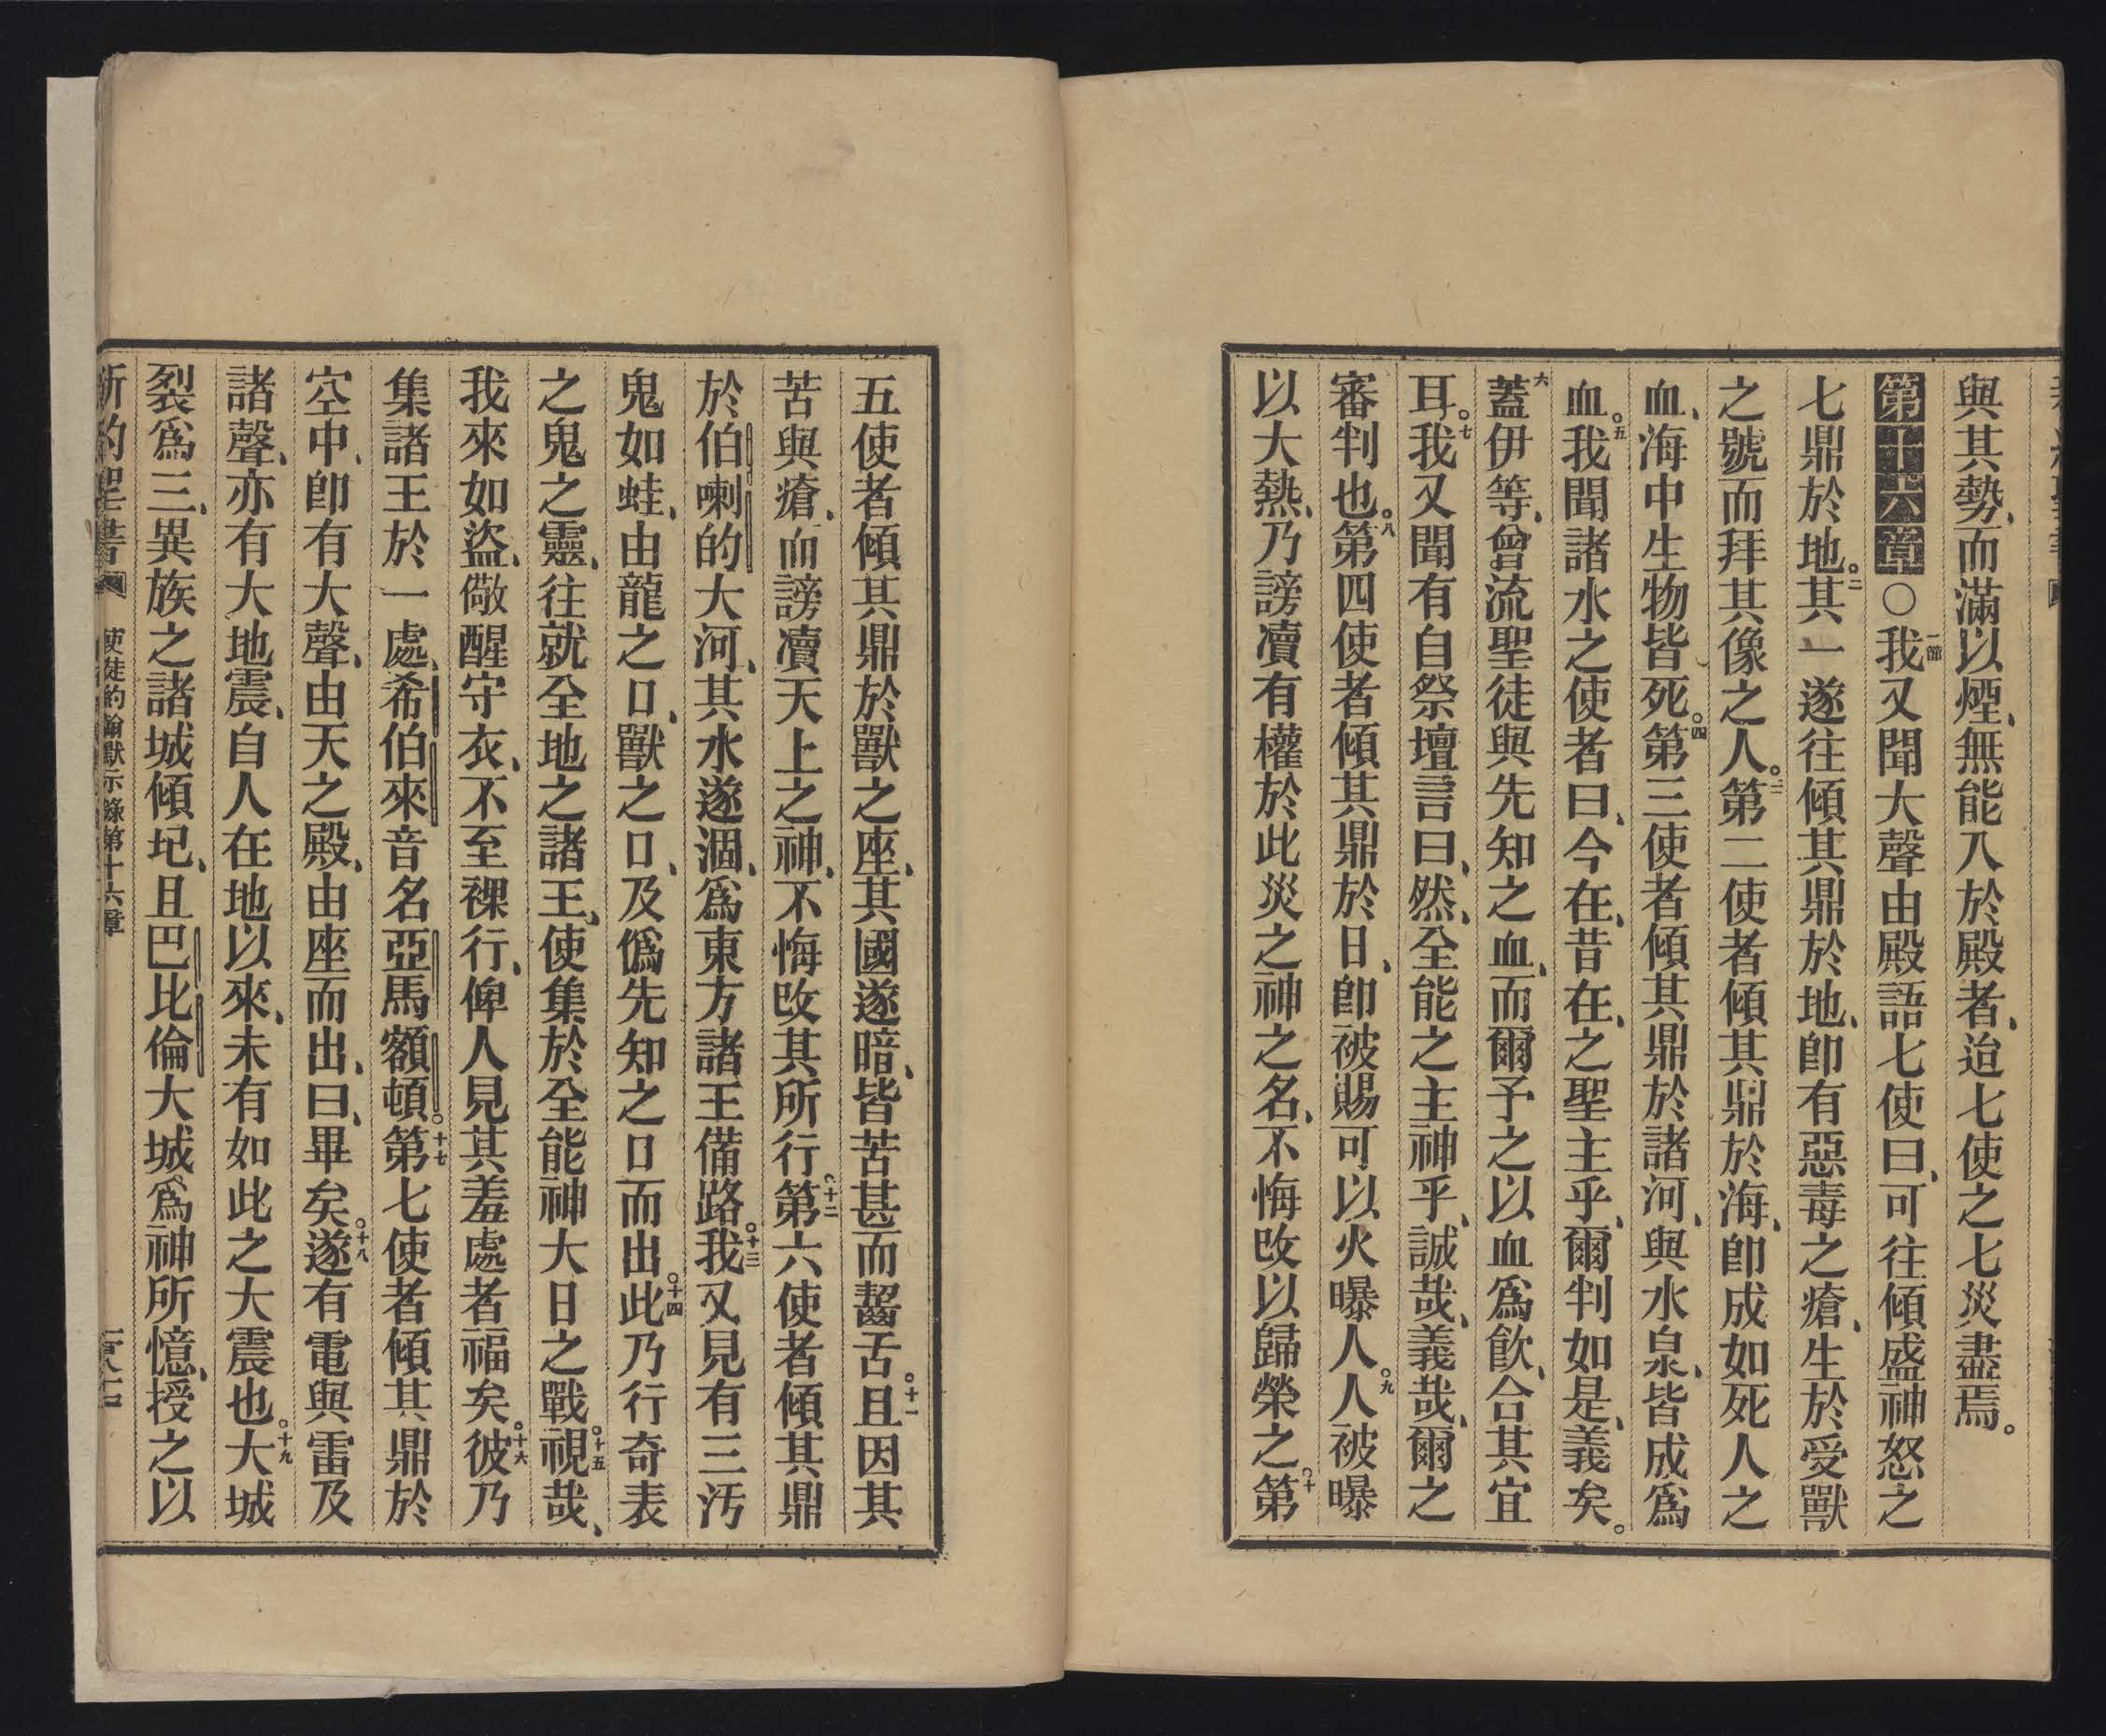 與其勢、而滿以煙、無能入於殿者、迨七使之七災盡焉。
第十六章○一節我又聞大聲由殿語七使曰、可往傾盛神怒之
七鼎於地。二其一遂往傾其鼎於地、卽有惡毒之瘡、生於受獸
之號而拜其像之人。三第二使者傾其鼎於海、卽成如死人之
血、海中生物皆死。四第三使者傾其鼎於諸河、與水泉、皆成爲
血。五我聞諸水之使者曰、今在、昔在、之聖主乎、爾判如是、義矣。
六蓋伊等、曾流聖徒與先知之血、而爾予之以血爲飮、合其宜
耳。七我又聞有自祭壇言曰、然、全能之主神乎、誠哉、義哉、爾之
審判也。八第四使者傾其鼎於日、卽被賜可以火曝人。九人被曝
以大熱、乃謗凟有權於此災之神之名、不悔改以歸榮之。十第
五使者傾其鼎於獸之座、其國遂暗、皆苦甚而齧舌。十一且因其
苦與瘡、而謗凟天上之神、不悔改其所行。十二第六使者傾其鼎
於伯喇的大河、其水遂涸、爲東方諸王備路。十三我又見有三汚
鬼如蛙、由龍之口、獸之口、及僞先知之口而出。十四此乃行奇表
之鬼之靈、往就全地之諸王、使集於全能神大日之戰。十五視哉、
我來如盜、儆醒守衣、不至裸行、俾人見其羞處者福矣。十六彼乃
集諸王於一處、希伯來音名亞馬額頓。十七第七使者傾其鼎於
空中、卽有大聲、由天之殿、由座而出、曰、畢矣。十八遂有電與雷及
諸聲、亦有大地震、自人在地以來、未有如此之大震也。十九大城
裂爲三、異族之諸城傾圮、且巴比倫大城、爲神所憶、授之以
新約聖書 使徒約翰默示錄第十六章